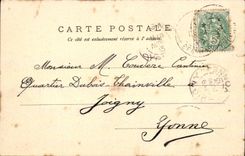 CARTE POSTALE
Ce côté est exclusivement réservé à l'adresse
Monsieur M. Coudere Cantinier
Quartier Dubois-Thainville
à
Joigny
Yonne